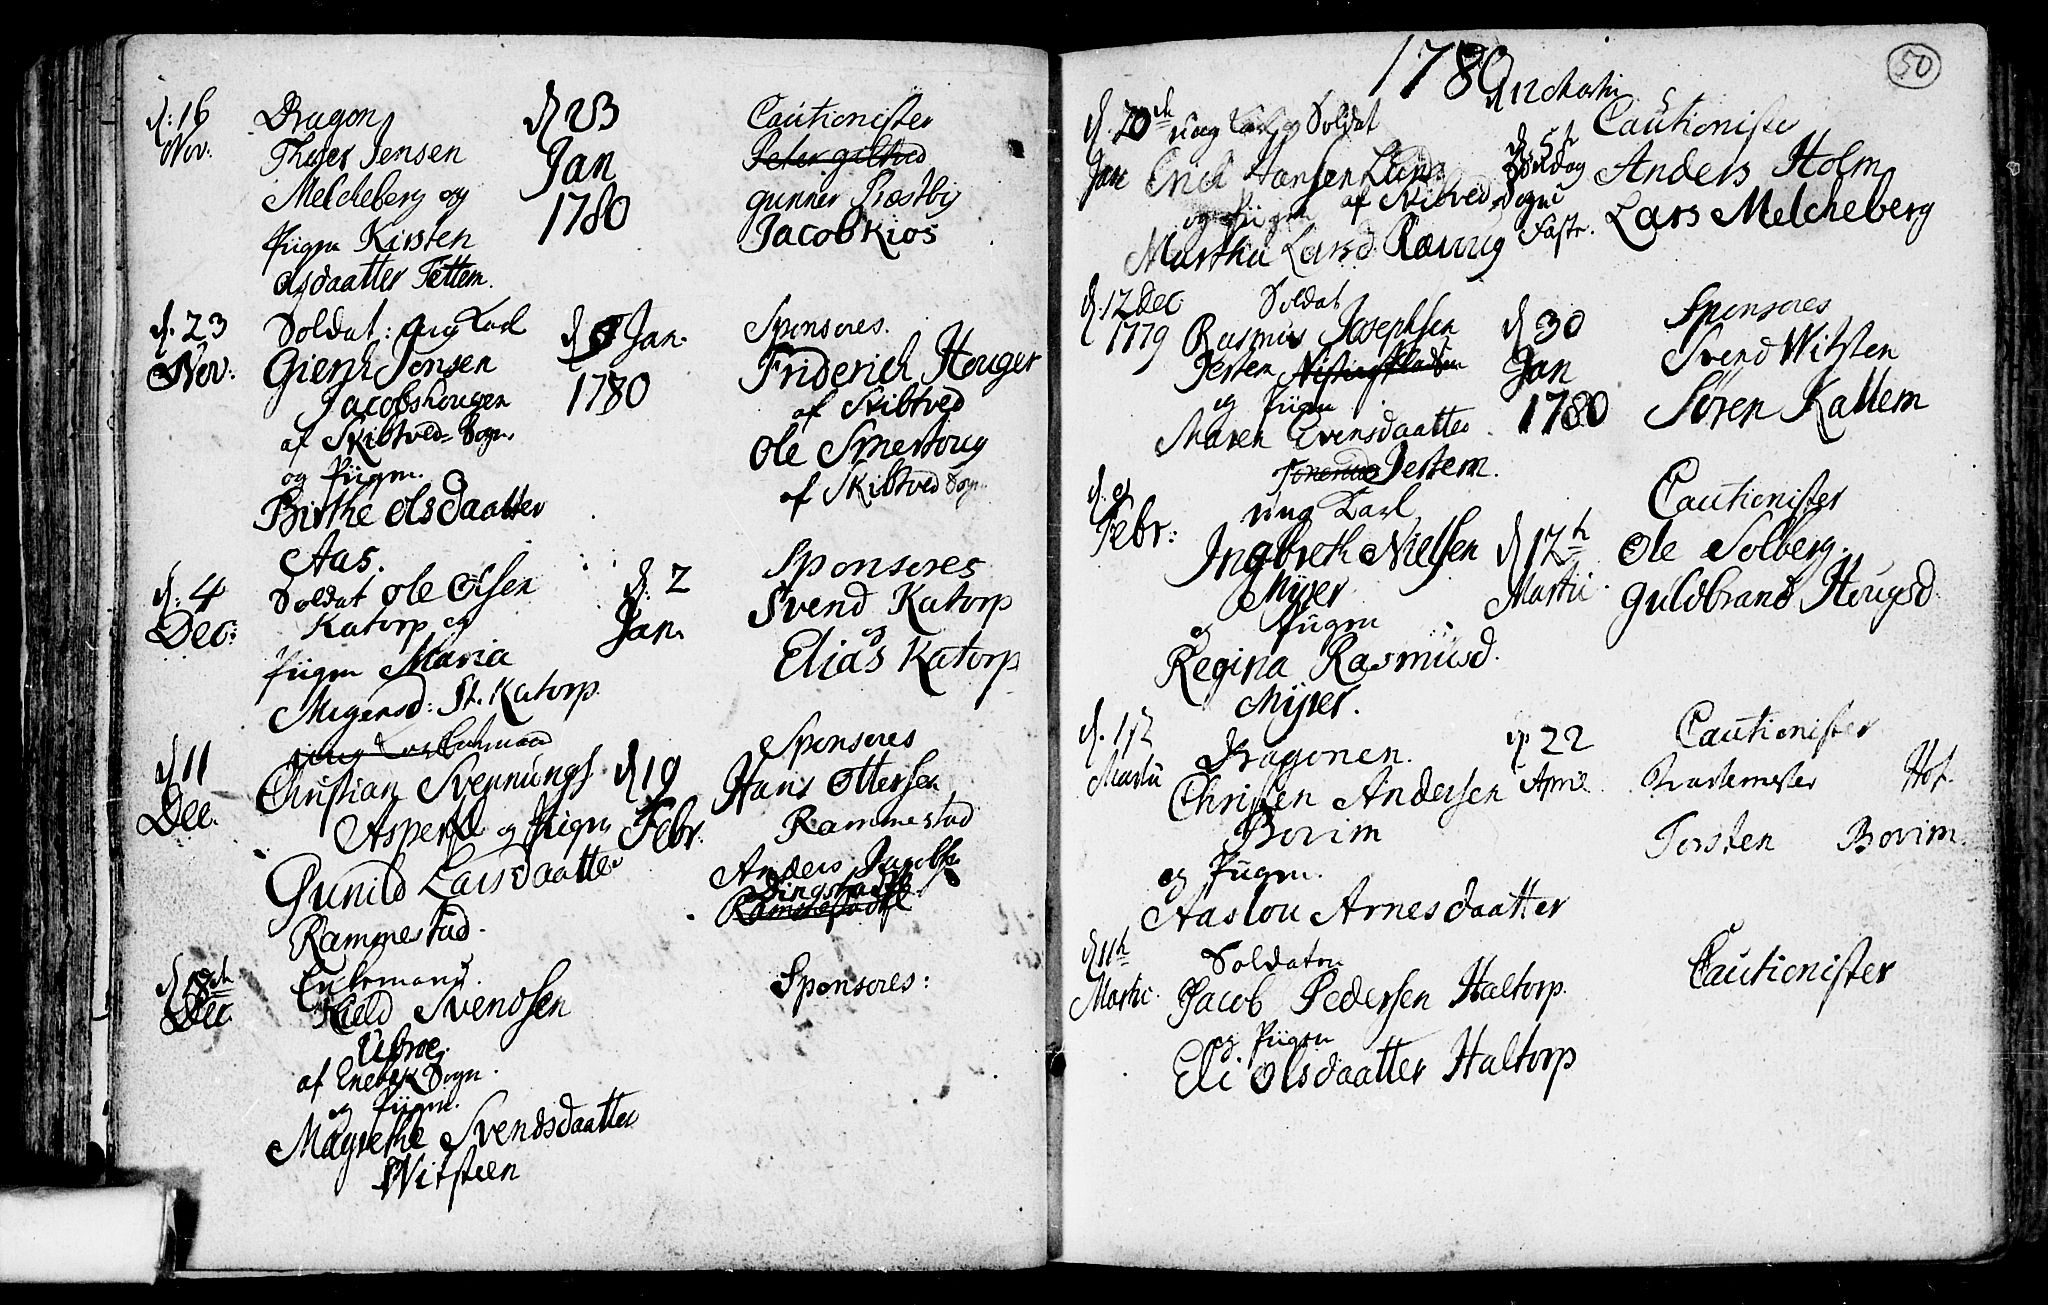 d: 16 Nov:
Dragon
Jensen
Melcheberg og
Piigen Kirsten
Olsdaatter Tettem.
d 23
Jan
1780
Cautionister
gunner Præstbÿ
Jacob Kios
d. 23
Nov:
Soldat: ung Karl
Jensen
Jacobshougen
af Skibtved Sogn.
og Piigen.
Birthe Olsdaatter
Aas.
d Jan.
1780
Sponsores.
Friderich Houger
af Skibtved
Ole Smertoug
af Skibtved Sogn
d: 4
Dec:
Soldat Ole Olsen
Katorp og
Piigen Maria
Mogensd: St. Katorp.
d: 2
Jan.
Sponsores
Svend Katorp
og
Elias Katorp
d 11
Dec.
Christian Svennungs
og Piigen
Gunild Larsdaatter
Rammestad.
d 19
Febr.
Sponsores
Hans Ottersen
Rammestad
Anders Jacobs
d 18de
Dec
Enkemand.
Kield Svendsen
af Enebak Sogn.
og Piigen.
Magrethe Svendsdaatter
Witsteen
Sponsores:
1780
50
d 12 Martii
d. 20de
Jan
ung Karl og Soldat
Erich Hansen Lund
af Skibtved Sogn
og Piigen
Martha Larsd.
d. 5te
Søndag
Faste.
Cautionister
Anders Holm
Lars Melcheberg
d. 12 Dec.
1779
Soldat
Rasmus Josephsen
Jestem
og Piigen
Maren Evensdaatter
Jestem.
d 30
Jan
1780
Sponsores
Svend Witsten
Søren Kallem
d. 9
Febr:
ung Karl
Ingbreth Nielsen
Mÿrer
og Piigen
Regina Rasmusd.
Mÿrer.
d 12te
Martii
Cautionister
Ole Solberg.
Guldbrand Hougsd.
d. 12
Martii
Dragonen.
Christen Andersen
Bovim
og Piigen.
Aaslou Arnesdaatter
d. 22
April
Cautionister
Hof.
Torsten Bovim.
d 11te
Martii.
Soldaten
Jacob Pedersen Haltorp.
og Piigen
Eli Olsdaatter Haltorp
Cautionister